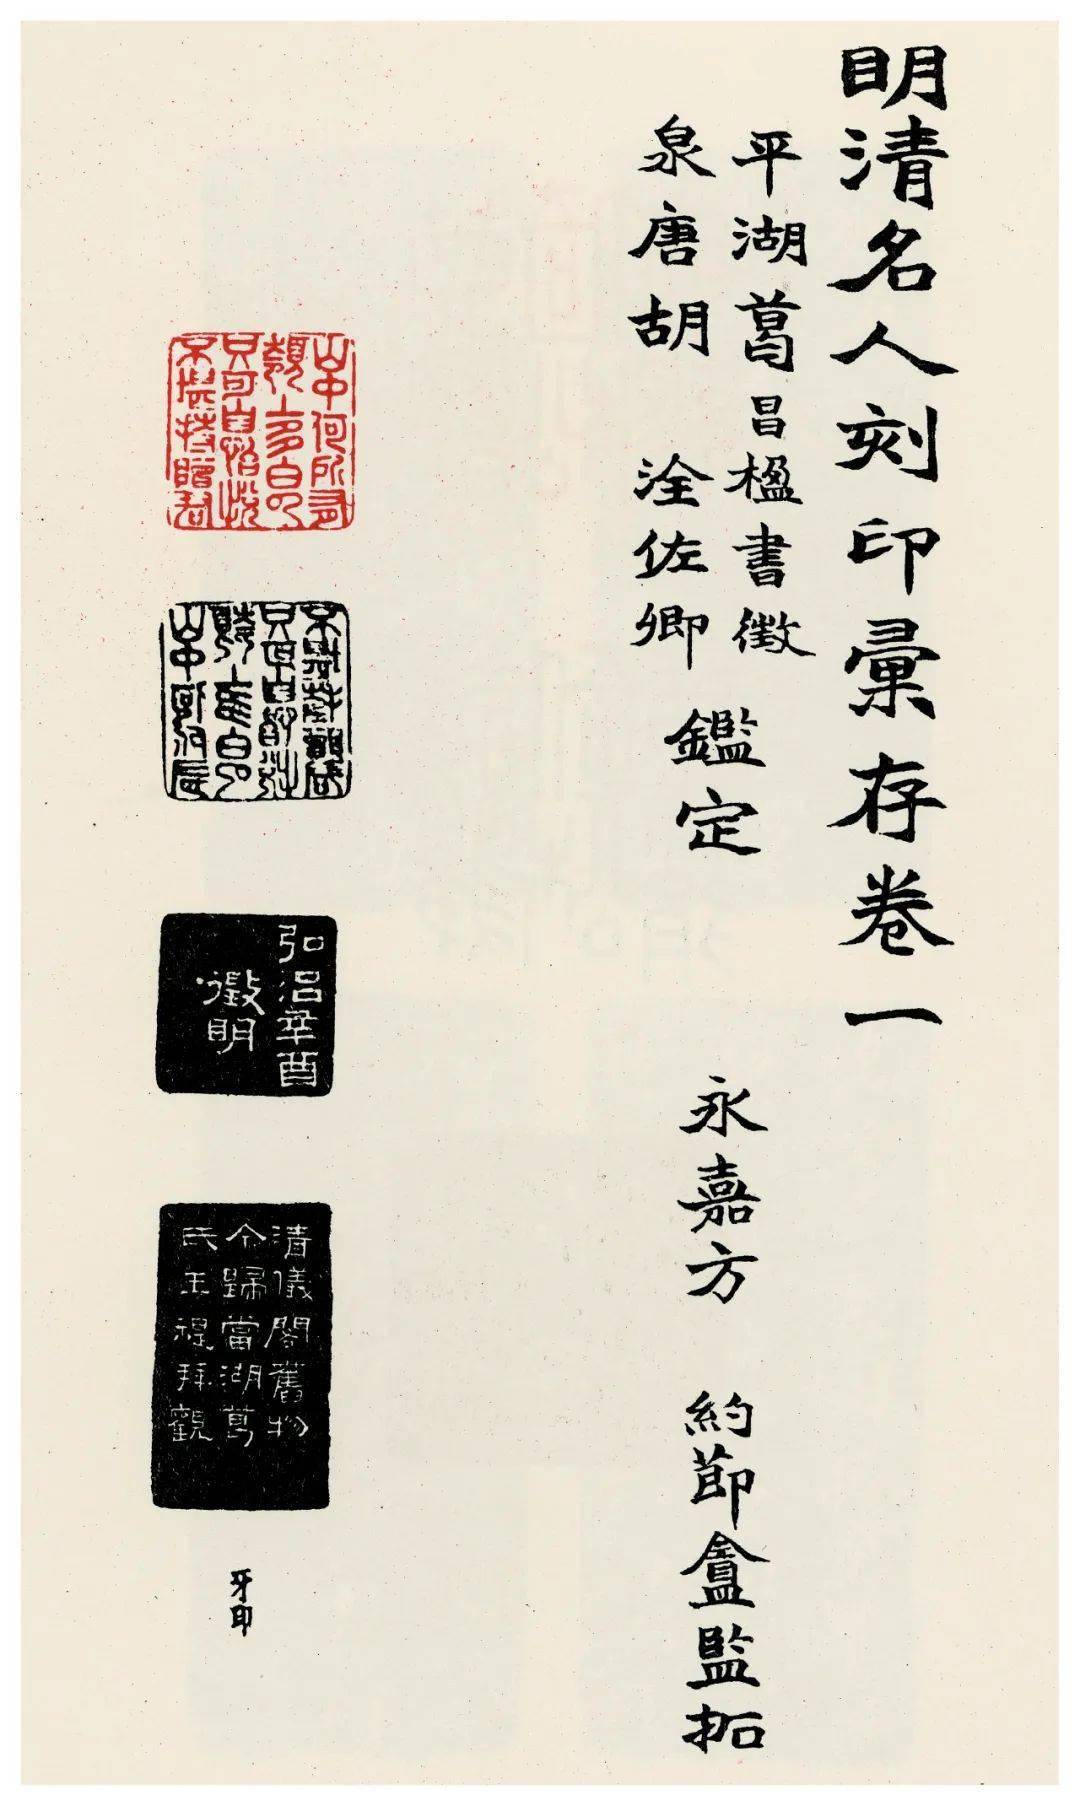 明清名人刻印彙存卷一
平湖葛昌楹書徵
泉唐胡 洤佐卿
鑑定
永嘉方 約節盦監拓
山中何所有
嶺上多白云
只可自怡悅
不堪持贈君
不堪持贈君
只可自怡悅
嶺上多白云
山中何所有
弘治辛酉
徵明
清儀閣舊物
今歸當湖葛
氏王禔拜觀
牙印